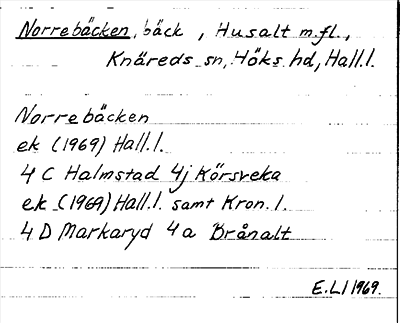 Norrebäcken, bäck, Husalt m.fl.,
Knäreds sn, Höks hd, Hall.l.
Norrebäcken
ek (1969) Hall.l.
4 C Halmstad 4j Körsveka
ek (1969) Hall.l. samt Kron.l.
4 D Markaryd 4a Brånalt
E.Ll 1969.